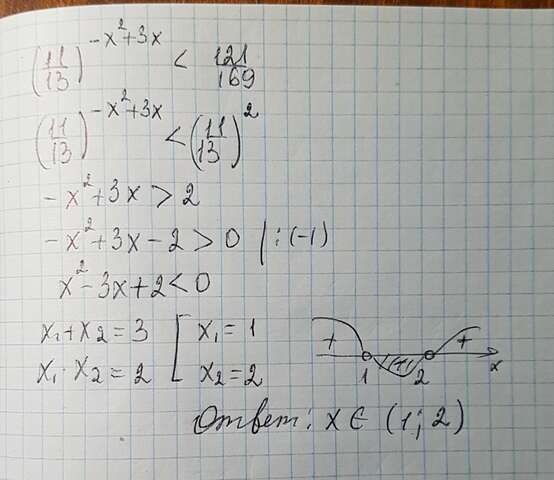 (11/13)^(-x²+3x) < 121/169
(11/13)^(-x²+3x) < (11/13)²
-x²+3x > 2
-x²+3x-2 > 0 | :(-1)
x²-3x+2 < 0
x₁+x₂=3 [ x₁=1
x₁·x₂=2 [ x₂=2
+ (-) +
1 2 x
Ответ: x ∈ (1; 2)